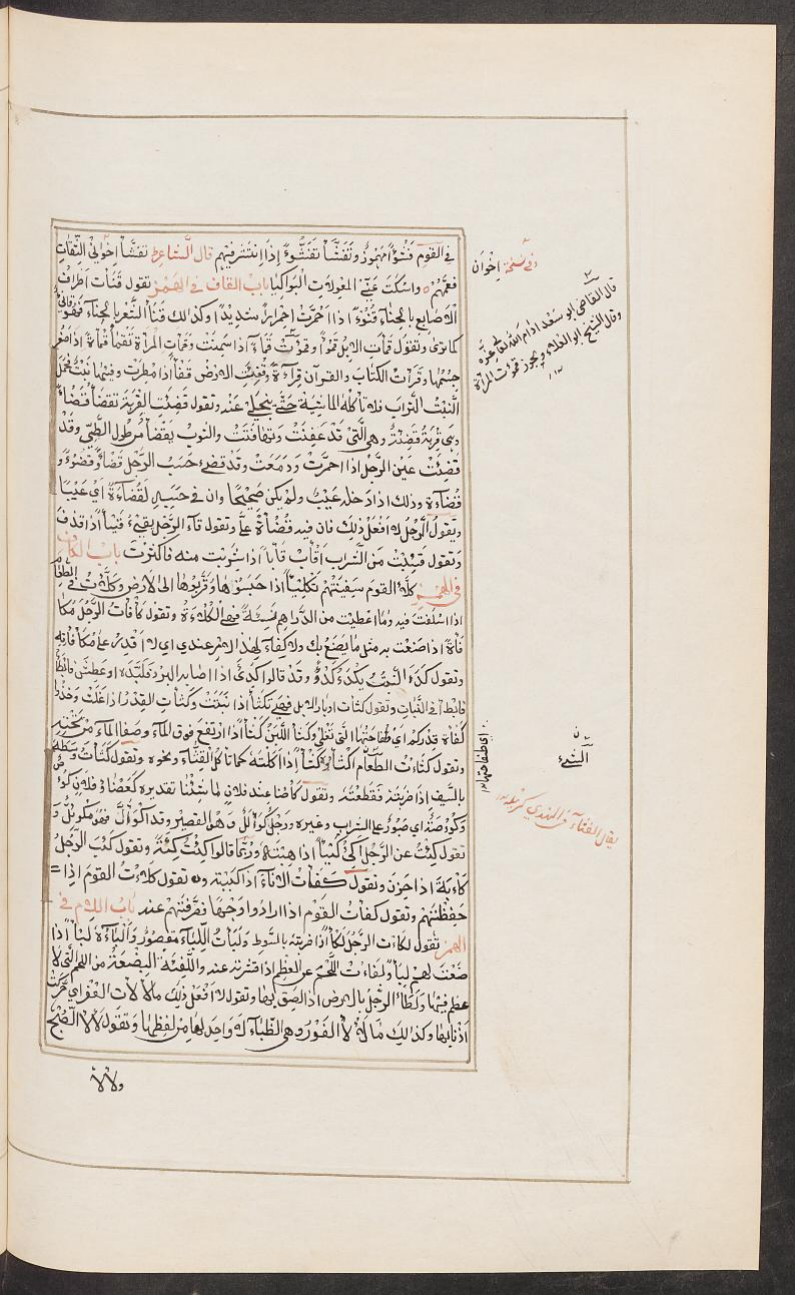 في القوم فشوءا مهموز وتفشأ تفشوءا إذا انتشر فيهم قال الشاعر تفشأ اخواني الثقات
فعمهم واسكت عني المعولات البواكيا باب القاف في الهمز تقول قنأت اطراف
الاصابع بالحناء قنوءا اذا احمرت احمرارا شديدا وكذلك قنأ الشعر بالحناء فهو قاني
كما ترى وتقول قمأت الابل قموءا وقموءت قماءة اذا سمنت وقمأت المرأة تقمأ قماءة اذا صغر
جسمها وقرأت الكتاب والقرآن قراءة وقفئت الارض قفأ اذا مطرت وفيها نبت فحمل
النبت التراب فلا تأكله الماشية حتى ينجلي عنه وتقول قضئت القربة تقضأ قضأ
وهي قربة قضئة وهي التي قد عفنت وتهافتت والثوب يقضأ من طول الطي وقد
قضئت عين الرجل اذا احمرت ودمعت وقد قضئ حسب الرجل قضأ وقضوءا و
قضاءة وذلك اذا دخله عيب ولم يكن صحيحا وان في حسبه لقضاءة اي عيبا
ويقول الرجل لا افعل ذلك فان فيه قضأة علي وتقول قاء الرجل يقيء قيئا اذا قذف
وتقول قئبت من الشراب اقأب قأبا اذا شربت منه فاكثرت باب الكاف
في الهمز كلأ القوم سفينتهم تكليئا اذا حبسوها وقربوها الى الارض وكلأت في الطعام
اذا اسلفت فيه وما اعطيت من الدراهم نسيئة فهي الكلاءة وتقول كافأت الرجل مكا
فأة اذا صنعت به مثل ما يصنع بك ولا كفاء لهذا الامر عندي اي لا اقدر على مكافأته
وتقول كدأ النبت يكدأ كدوءا وقد قالوا كدئ اذا اصابه البرد فلبده او عطش فابطأ
فابطأ في النبات وتقول كثأت اوبار الابل فهي تكثأ اذا نبتت وكثأت القدر اذا غلت وخذ
كفأة قدركم اي طفاحتها التي تغلي وكثأ اللبن كثأ اذا ارتفع فوق الماء وصفا الماء من تحته
وتقول كثأت الطعام اكثأ كثأ اذا اكلته كما تأكل القثاء ونحوه وتقول كشأت وسطه
بالسيف اذا ضربته فقطعته وتقول كأصنا عند فلان ما شئنا تقديره كعصنا وفلان كؤ
وكؤوصة اي صبور على الشراب وغيره ورجل كوألل وهو القصير وقد اكوأل فهو مكوئل و
تقول كئت عن الرجل اكئ كيئا اذا هبته وربما قالوا كئت كيئة وتقول كئب الرجل
كآبة اذا حزن وتقول كفأت الاناء اذا كببته وتقول كلأت القوم اذا
حفظتهم وتقول كفأت القوم اذا ارادوا وجها فصرفتهم عنه باب اللام في
الهمز تقول لكأت الرجل لكأ اذا ضربته بالسوط ولبأت اللبأ مقصور والباءة لبأ اذا
صنعت لهم لبأ ولفأت اللحم عن العظم اذا قشرته عنه واللفيئة البضعة من اللحم التي لا
عظم فيها ولطأ الرجل بالارض اذا لصق بها وتقول لا افعل ذلك ما لألأت الفور اي حركت
اذنابها وكذلك ما لألأ الفور وهي الظباء لا واحد لها من لفظها وتقول لألأ الصبح
ولألأ
وفي نسخة اخوان
قال القاضي ابو سعد ادام الله تعالى عزه
وقال الشيخ ابو العلاء ويجوز قموءت المرأة
اي طفاحتها
الشيء
يقال القثاء في الهندي